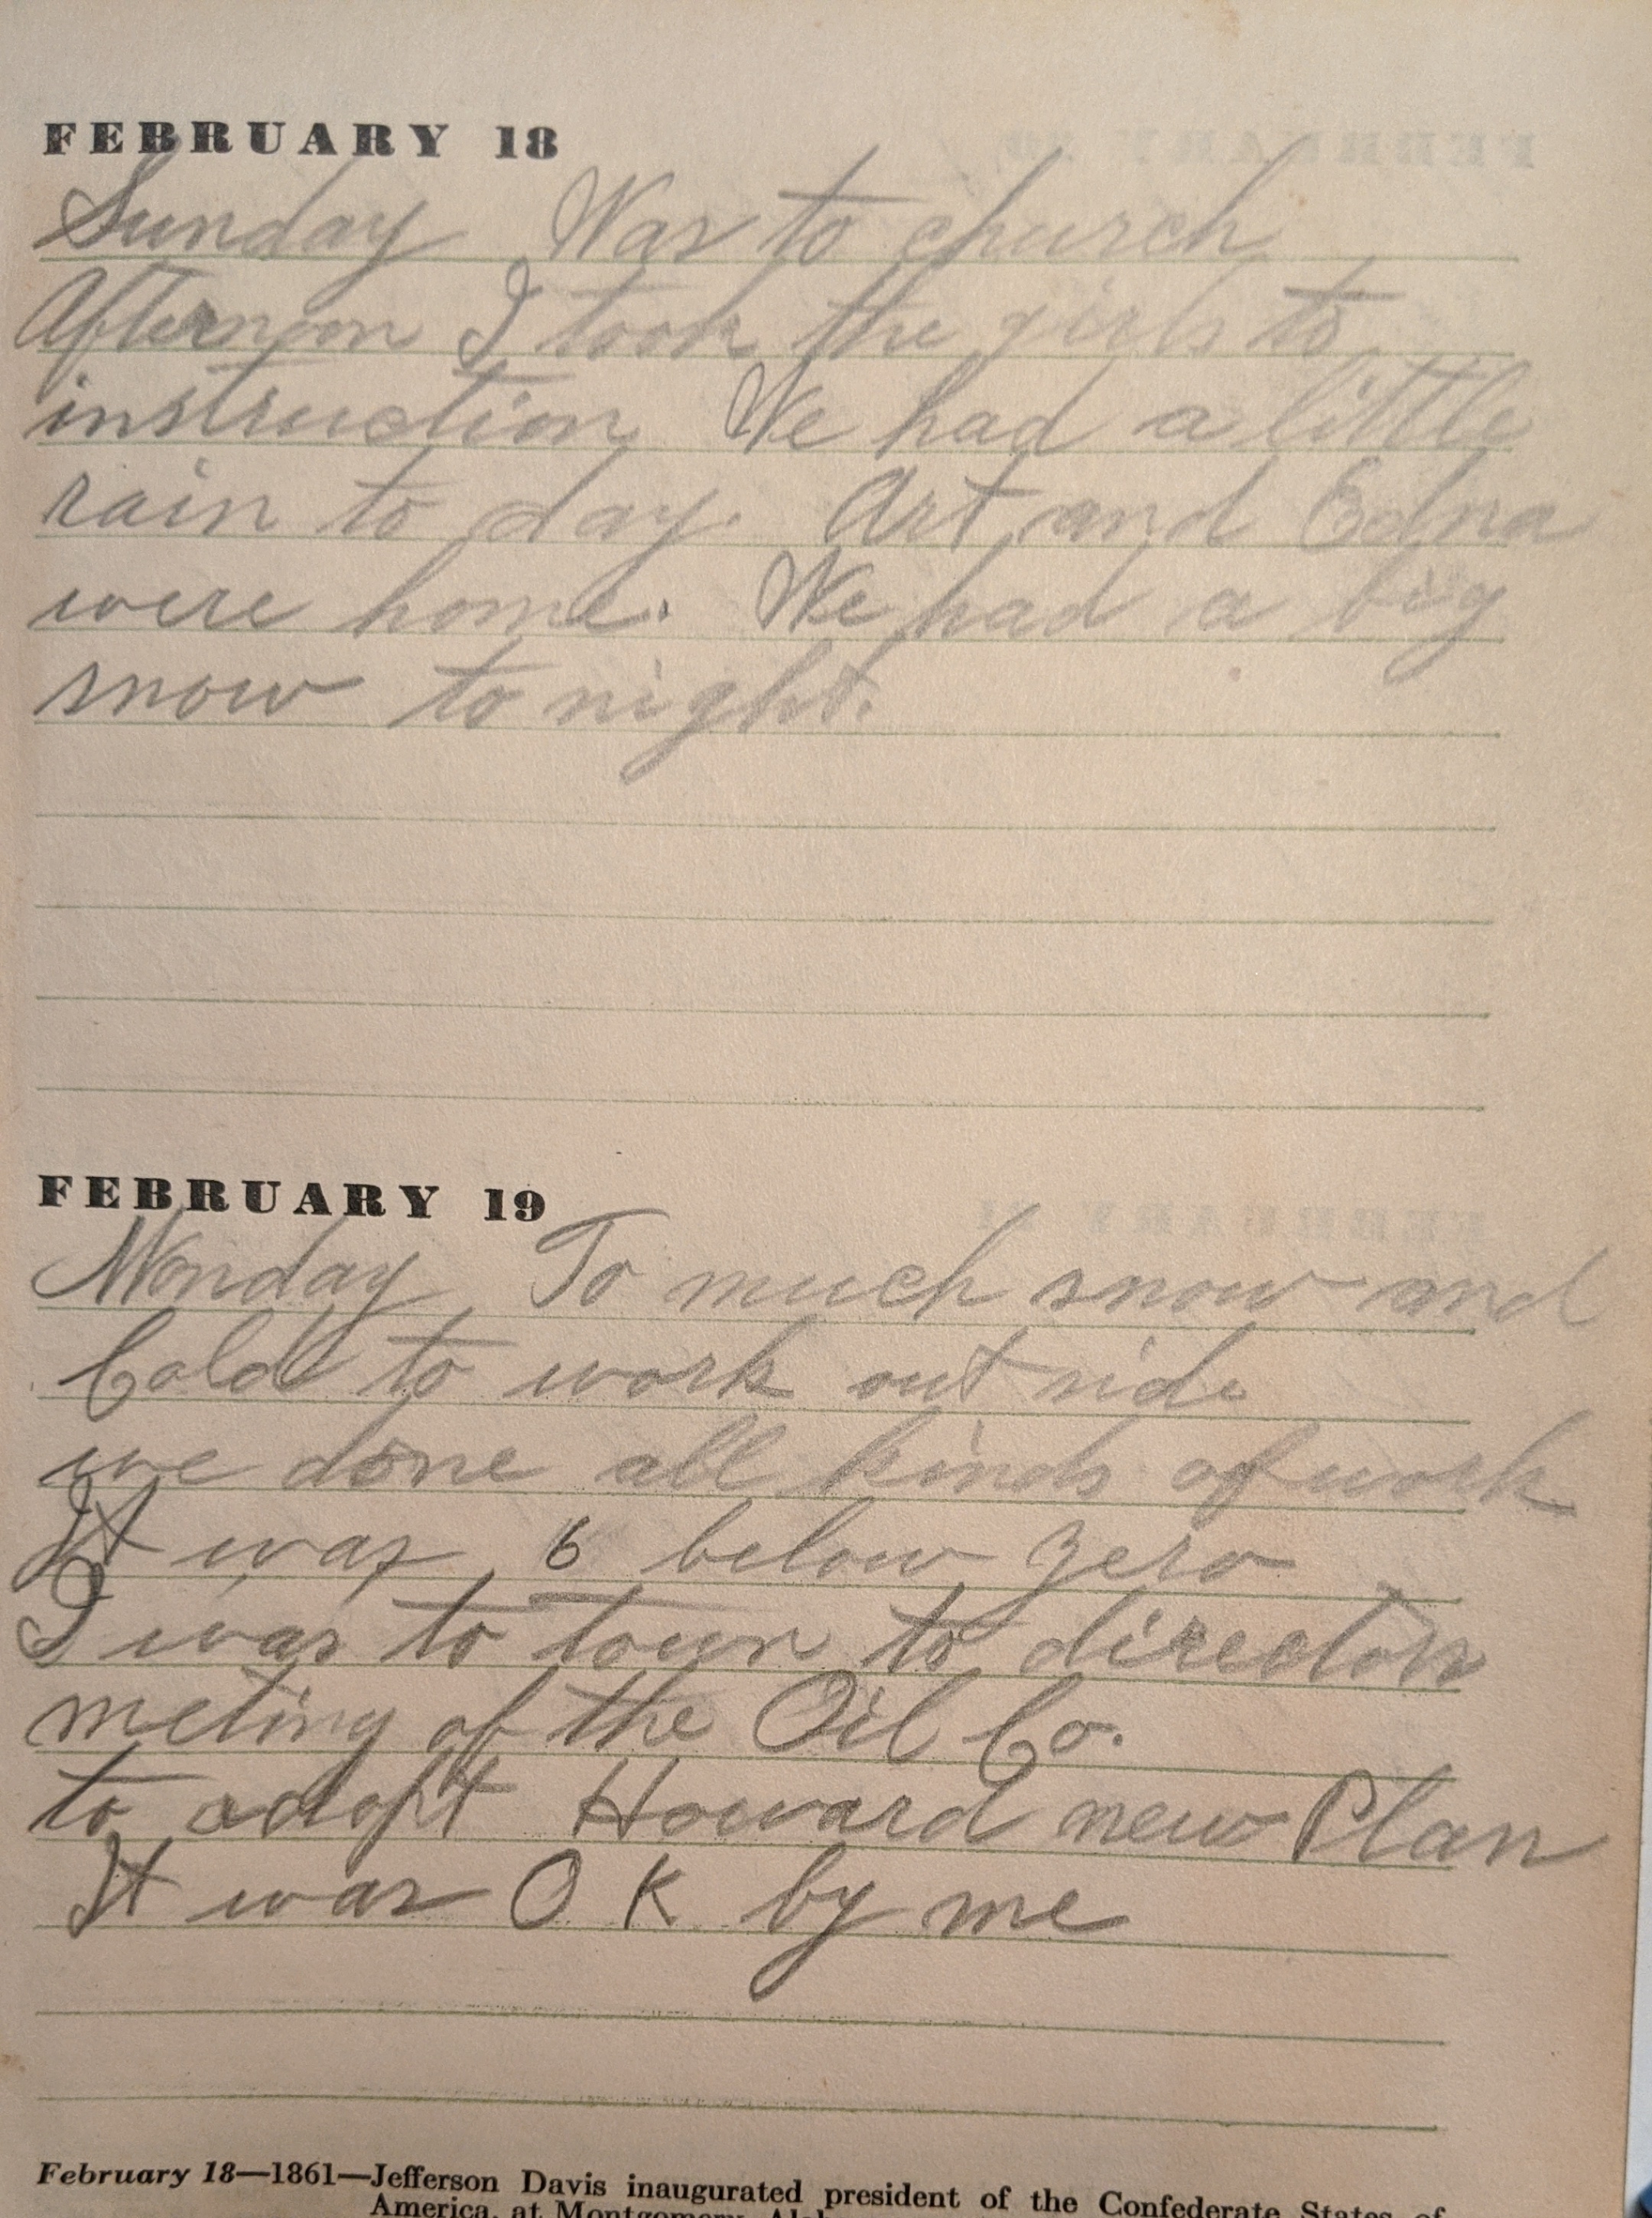 FEBRUARY 18
Sunday Was to church
Afternoon I took the girls to
instruction We had a little
rain to day. Art and Edna
were home. We had a big
snow to night.
FEBRUARY 19
Monday To much snow and
Cold to work out side
we done all kinds of work
It was 6 below zero
I was to town to directors
meting of the Oil Co.
to adopt Howard new Plan
It was O K by me
February 18—1861—Jefferson Davis inaugurated president of the Confederate States of
America, at Montgomery,